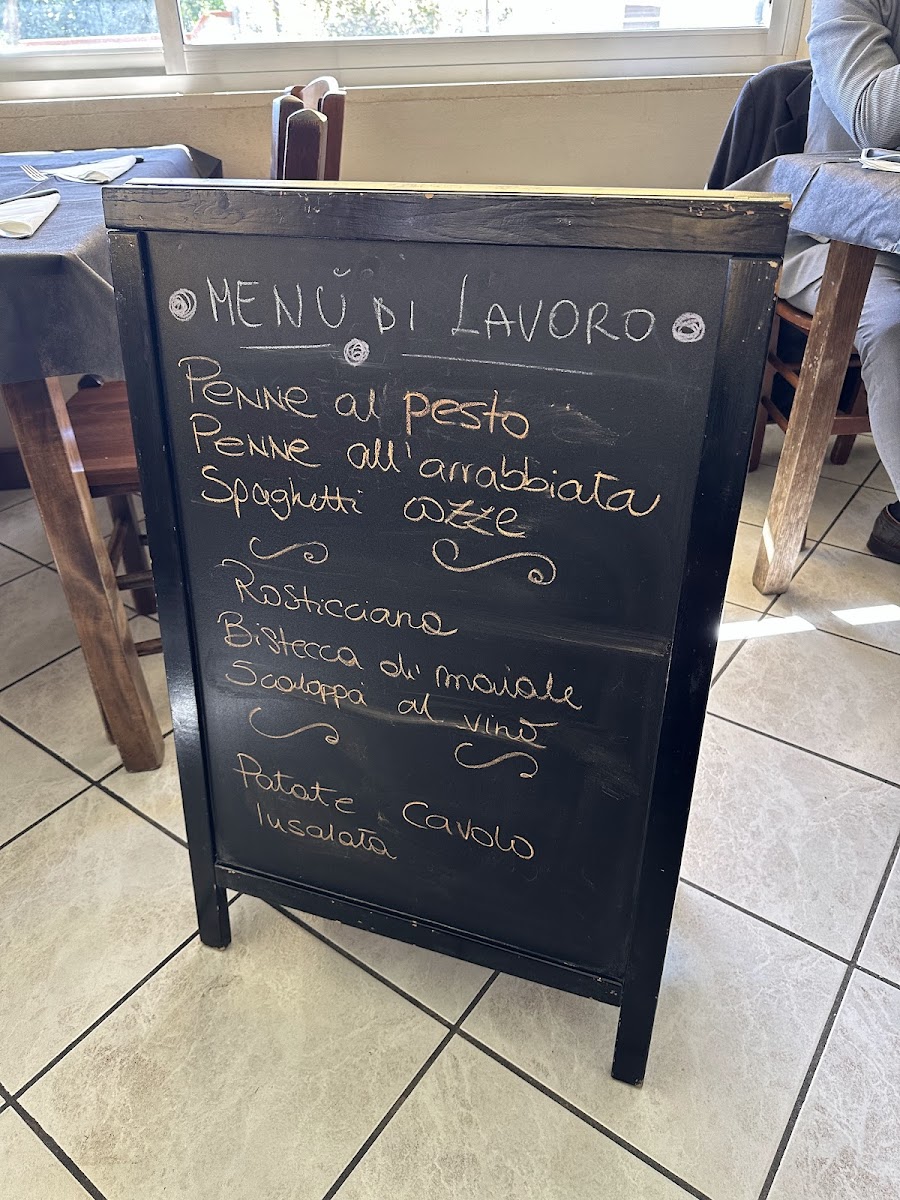 MENÙ DI LAVORO
Penne al pesto
Penne all'arrabbiata
Spaghetti cozze
Rosticciana
Bistecca di maiale
Scaloppa al vino
Patate Cavolo
Insalata